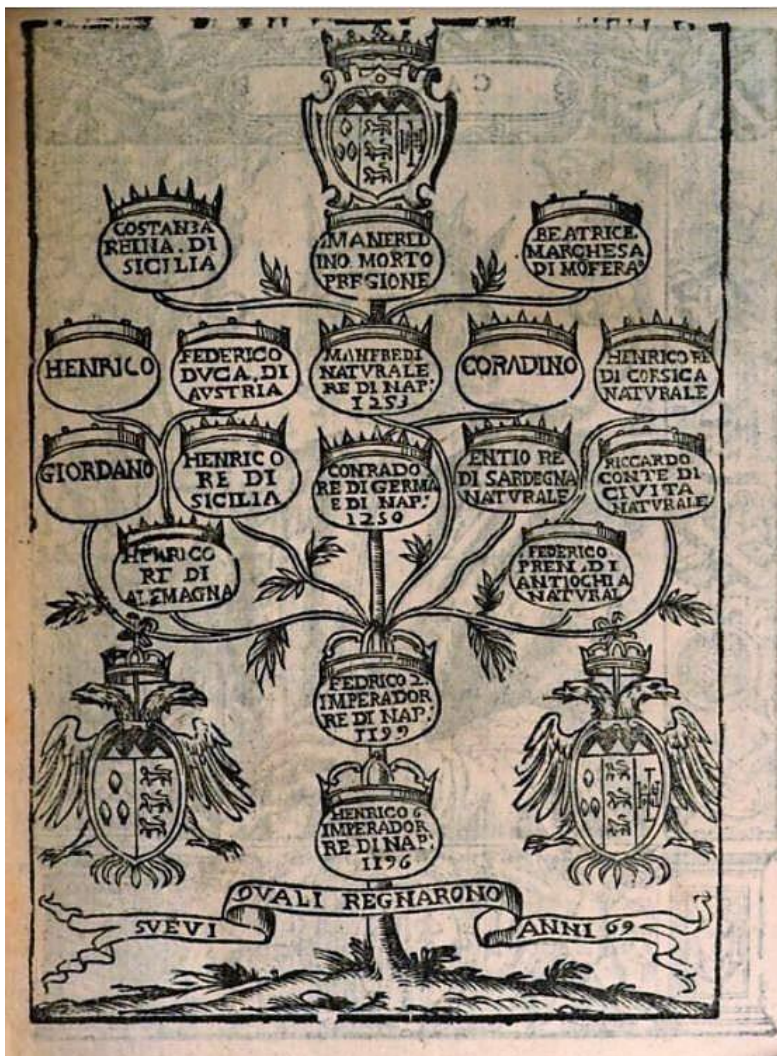 COSTANZA
REINA. DI
SICILIA
MANFRED
INO MORTO
PREGIONE
BEATRICE.
MARCHESA
DI MÕFERA
HENRICO
FEDERICO
DVCA. DI
AVSTRIA
MANFREDI
NATVRALE
RE DI NAP:
1253
CORADINO
HENRICO RE
DI CORSICA
NATVRALE
GIORDANO
HENRICO
RE DI
SICILIA
CONRADO
RE DI GERMA
E DI NAP:
1250
ENTIO RE
DI SARDEGNA
NATVRALE
RICCARDO
CONTE DI
CIVITA
NATVRALE
HENRICO
RE DI
ALEMAGNA
FEDERICO
PREN. DI
ANTIOCHIA
NATVRAL
FEDRICO 2
IMPERADOR
RE DI NAP:
1199
HENRICO 6
IMPERADOR
RE DI NAP:
1196
SVEVI QVALI REGNARONO ANNI 69